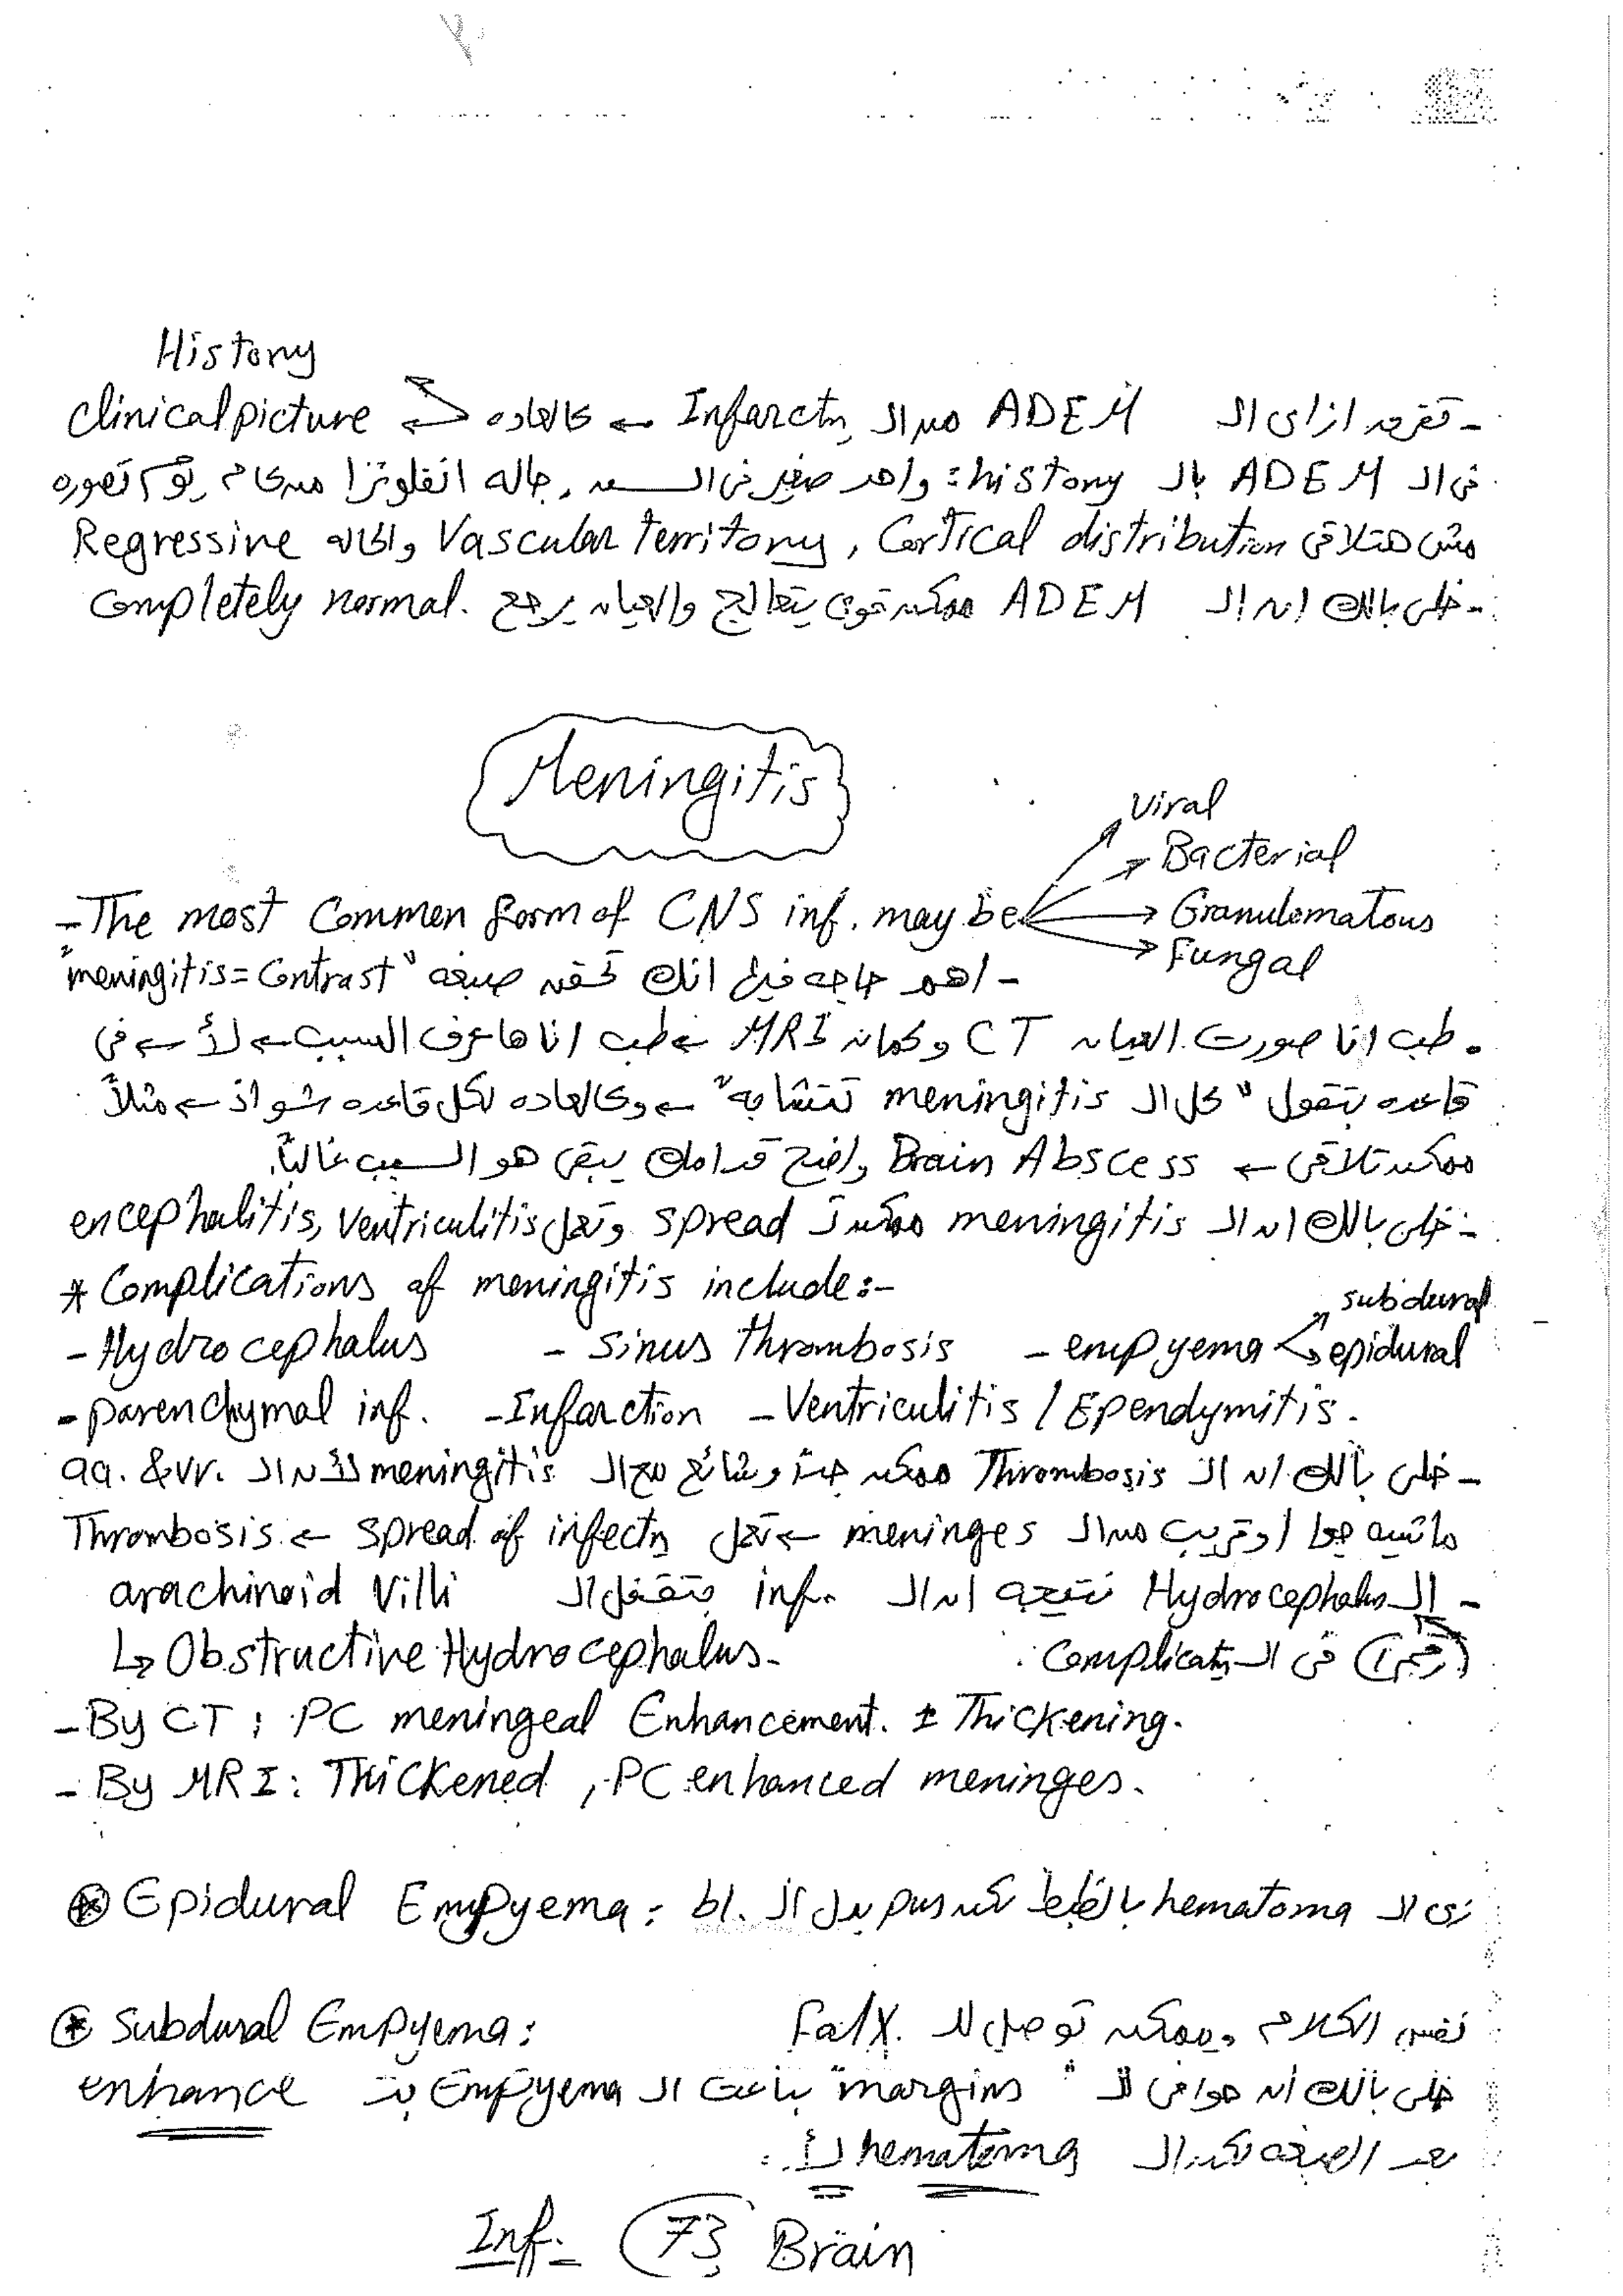 History
- تفرق ازاى الـ ADEM من الـ Infarctn ← كالعاده ← clinical picture
فى الـ ADEM بالـ history : واحد صغير فى السن , جاله انفلونزا من كام يوم تصوره
مش هتلاقى Vascular territory , Cortical distribution والحاله Regressive
- خلى بالك ان الـ ADEM ممكن قوى يتعالج والعيان يرجع completely normal.
Meningitis
Viral
Bacterial
- The most Common form of CNS inf. may be → Granulomatous
Fungal
- اهم حاجه فيها انك تحقن صبغه "meningitis = Contrast"
- طب انا صورت العيان CT وكمان MRI ← طب انا هاعرف السبب ← لأ ← فى
قاعده بتقول "كل الـ meningitis تتشابه" ← وكالعاده لكل قاعده شواذ ← مثلاً
ممكن تلاقى ← Brain Abscess واضح قدامك يبقى هو السبب غالباً.
- خلى بالك ان الـ meningitis ممكن تـ spread وتعمل encephalitis, Ventriculitis
* Complications of meningitis include:-
subdural
- Hydrocephalus - Sinus thrombosis - empyema epidural
- parenchymal inf. - Infarction - Ventriculitis / Ependymitis.
- خلى بالك ان الـ Thrombosis ممكن جداً وشائع مع الـ meningitis لأن الـ aa. & vv.
ماشيه جوا او قريب من الـ meninges ← تعمل spread of infectn ← Thrombosis
- الـ Hydrocephalus نتيجه ان الـ inf. بتقفل الـ arachinoid Villi
(رقم 1) فى الـ Complicatn ↳ Obstructive Hydrocephalus.
- By CT : PC meningeal Enhancement. ± Thickening.
- By MRI : Thickened , PC enhanced meninges.
⊛ Epidural Empyema : زى الـ hematoma بالظبط لكن pus بدل الـ bl.
⊛ Subdural Empyema : نفس الكلام وممكن توصل للـ Falx.
خلى بالك ان حوافى الـ "margins" بتاعت الـ Empyema بتـ enhance
بعد الصبغه لكن الـ hematoma لأ.
Inf. 73 Brain